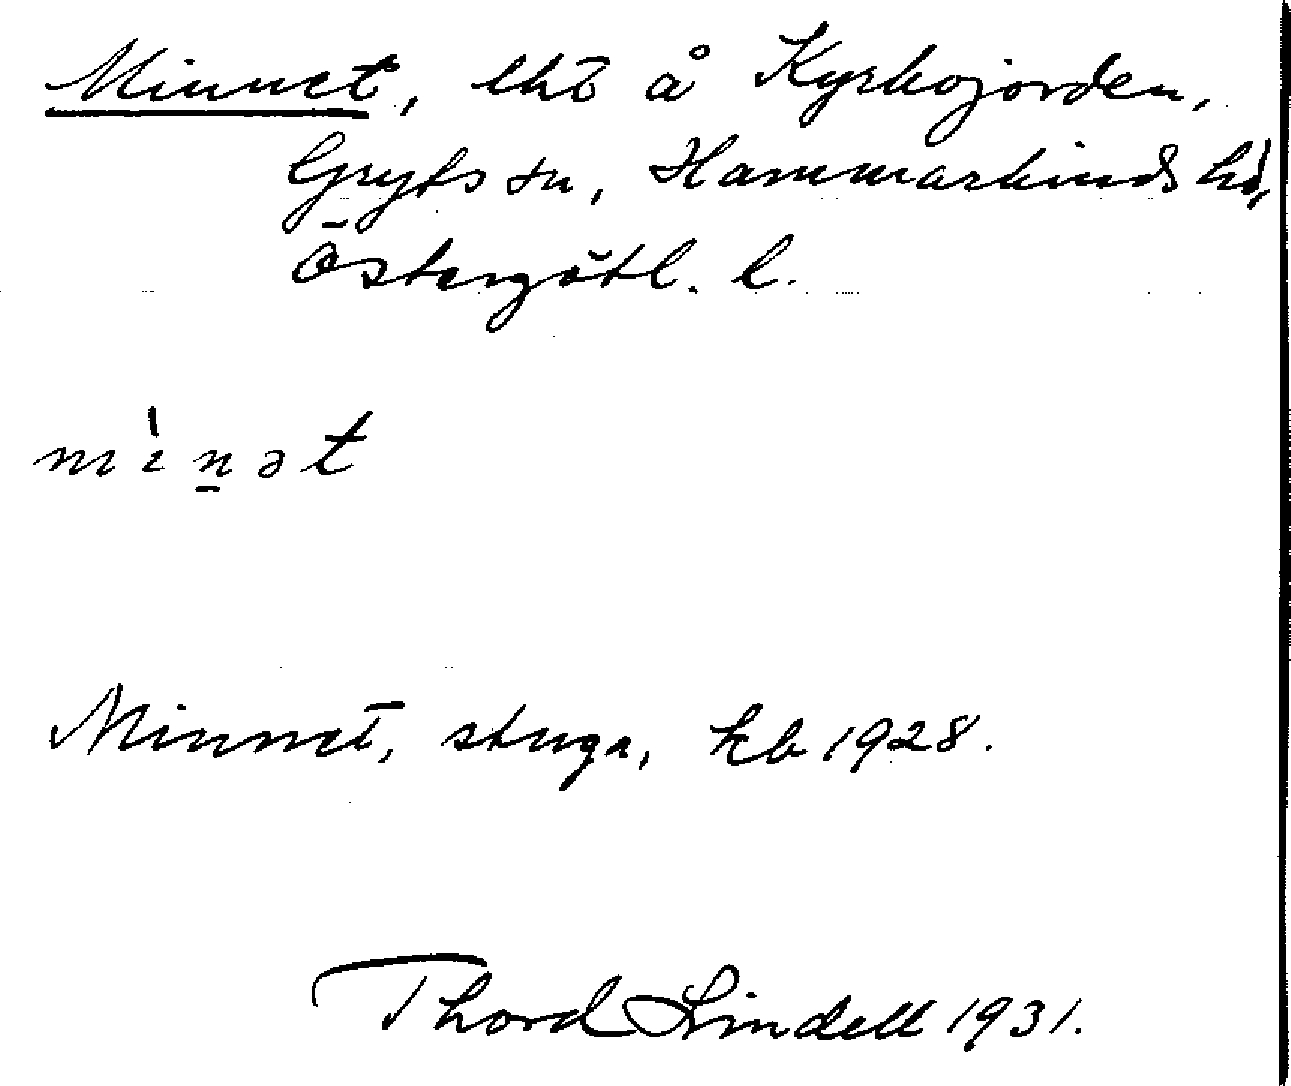 Minnet, lht å Kyrkojorden,
Gryts sn, Hammarkinds hd,
Östergötl. l.
mìn̠ət
Minnet, stuga, kb 1928.
Thord Lindell 1931.